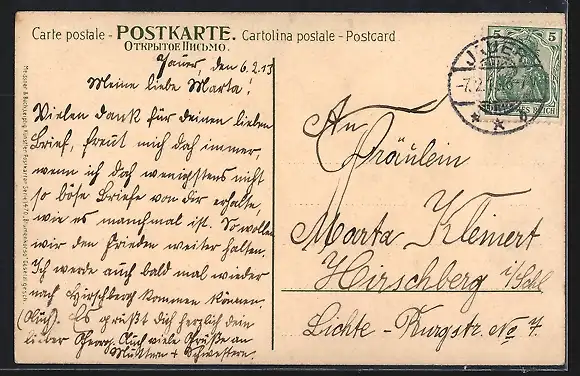 Carte postale - POSTKARTE. Cartolina postale - Postcard
ОТКРЫТОЕ ПИСЬМО.
Jauer, den 6.2.13
Meine liebe Marta!
Vielen Dank für deinen lieben
Brief, freut mich daß immer,
wenn ich doch wenigstens nicht
so böse Briefe von dir erhalte,
wie es manchmal ist. So wollen
wir den Frieden weiter halten.
Ich werde auch bald mal wieder
nach Hirschberg kommen können.
Es grüßt dich herzlich dein
lieber Georg. Auch viele Grüße an
Muttern + Schwestern.
An
Fräulein
Marta Kleinert
Hirschberg i/Schl
Lichte - Burgstr. No 7.
5 5
JAUER